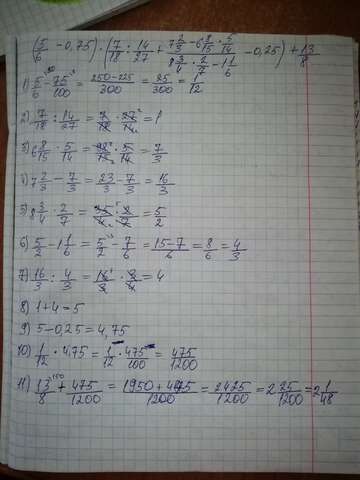 (5/6 - 0,75) · (7/18 : 14/27 + (7 2/3 - 6 8/15 · 5/14)/(8 3/4 · 2/7 - 1 1/6) - 0,25) + 13/8
1) 5/6 - 75/100 = (250-225)/300 = 25/300 = 1/12
2) 7/18 : 14/27 = 7/18 · 27/14 = 1
3) 6 8/15 · 5/14 = 98/15 · 5/14 = 7/3
4) 7 2/3 - 7/3 = 23/3 - 7/3 = 16/3
5) 8 3/4 · 2/7 = 35/4 · 2/7 = 5/2
6) 5/2 - 1 1/6 = 5/2 - 7/6 = (15-7)/6 = 8/6 = 4/3
7) 16/3 : 4/3 = 16/3 · 3/4 = 4
8) 1+4=5
9) 5-0,25=4,75
10) 1/12 · 4,75 = 1/12 · 475/100 = 475/1200
11) 13/8 + 475/1200 = (1950+475)/1200 = 2425/1200 = 2 25/1200 = 2 1/48